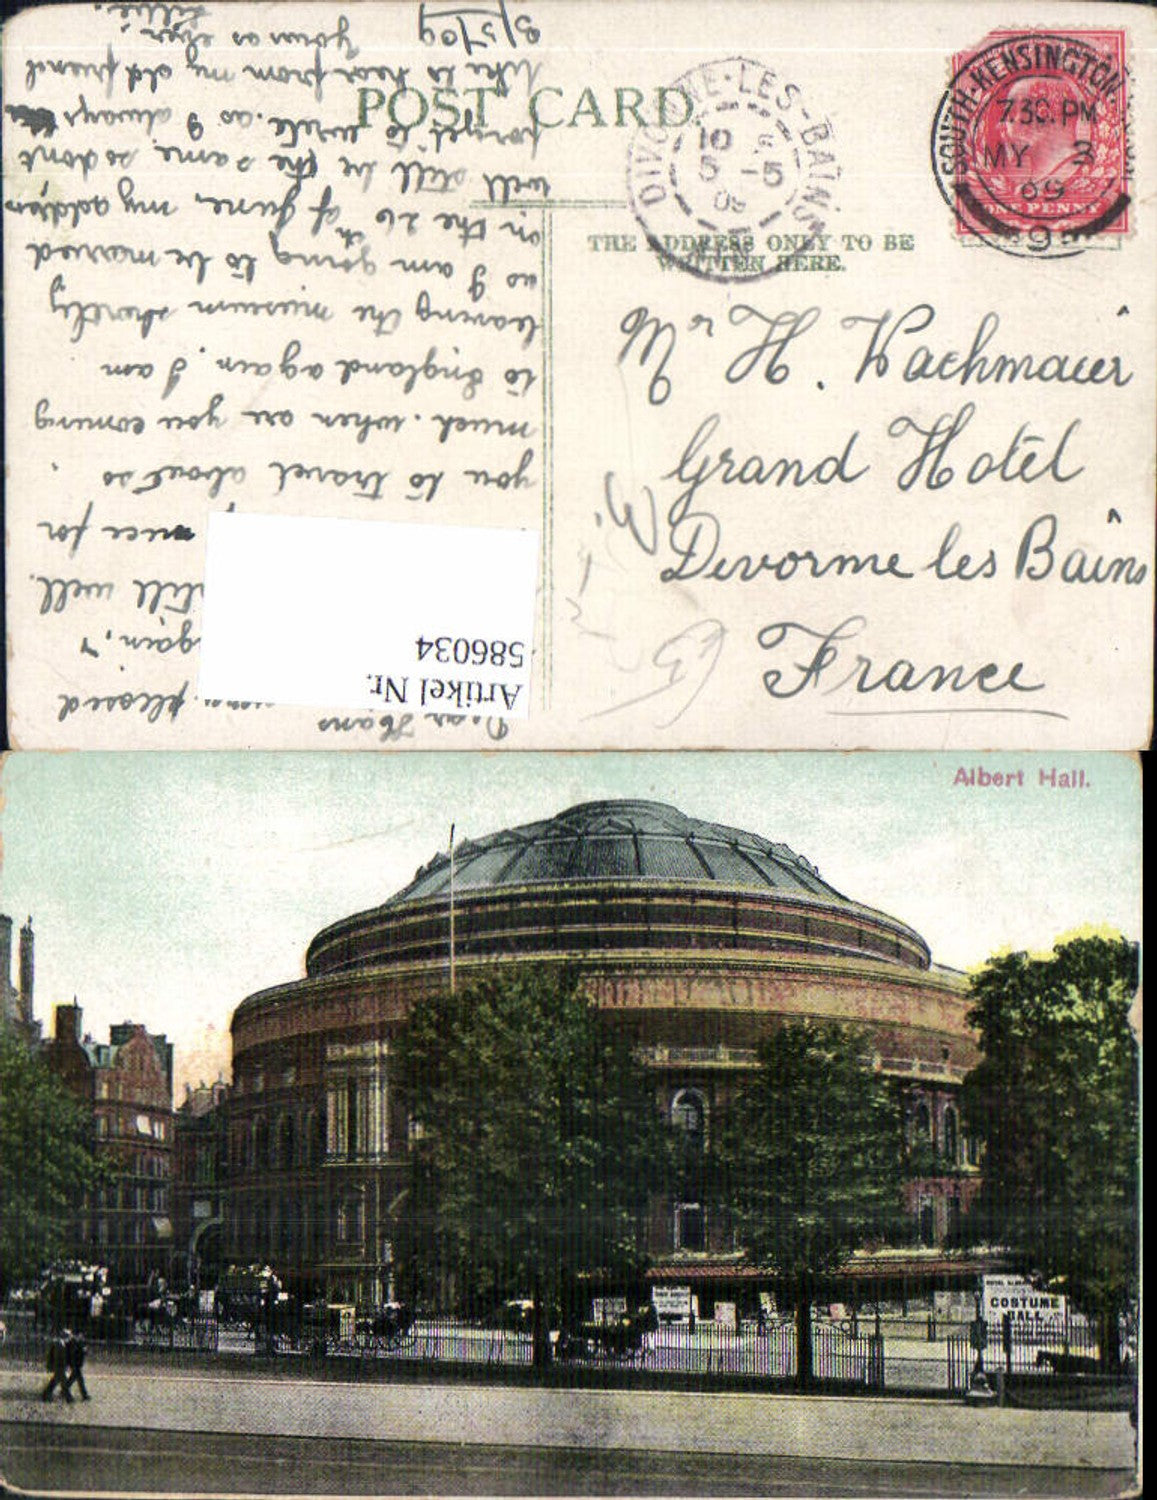 POST CARD.
THE ADDRESS ONLY TO BE
WRITTEN HERE.
SOUTH-KENSINGTON.
7.30. PM
MY 3
09
ONE PENNY
DIVONNE-LES-BAINS
10
5 - 5
09
Mr H. Wachmaier
Grand Hotel
Devorme les Bains
France
Dear Hans
pleased
again,
still well.
nice for
you to travel about so
much. when are you coming
to England again. I am
leaving the museum shortly
as I am going to be married
on the 26th of June. my address
will still be the same. so dont
forget to write. as I always
like to hear from my old friend
yours as ever.
Lillie.
3/5/09
Artikel Nr.
586034
Albert Hall.
COSTUME
BALL